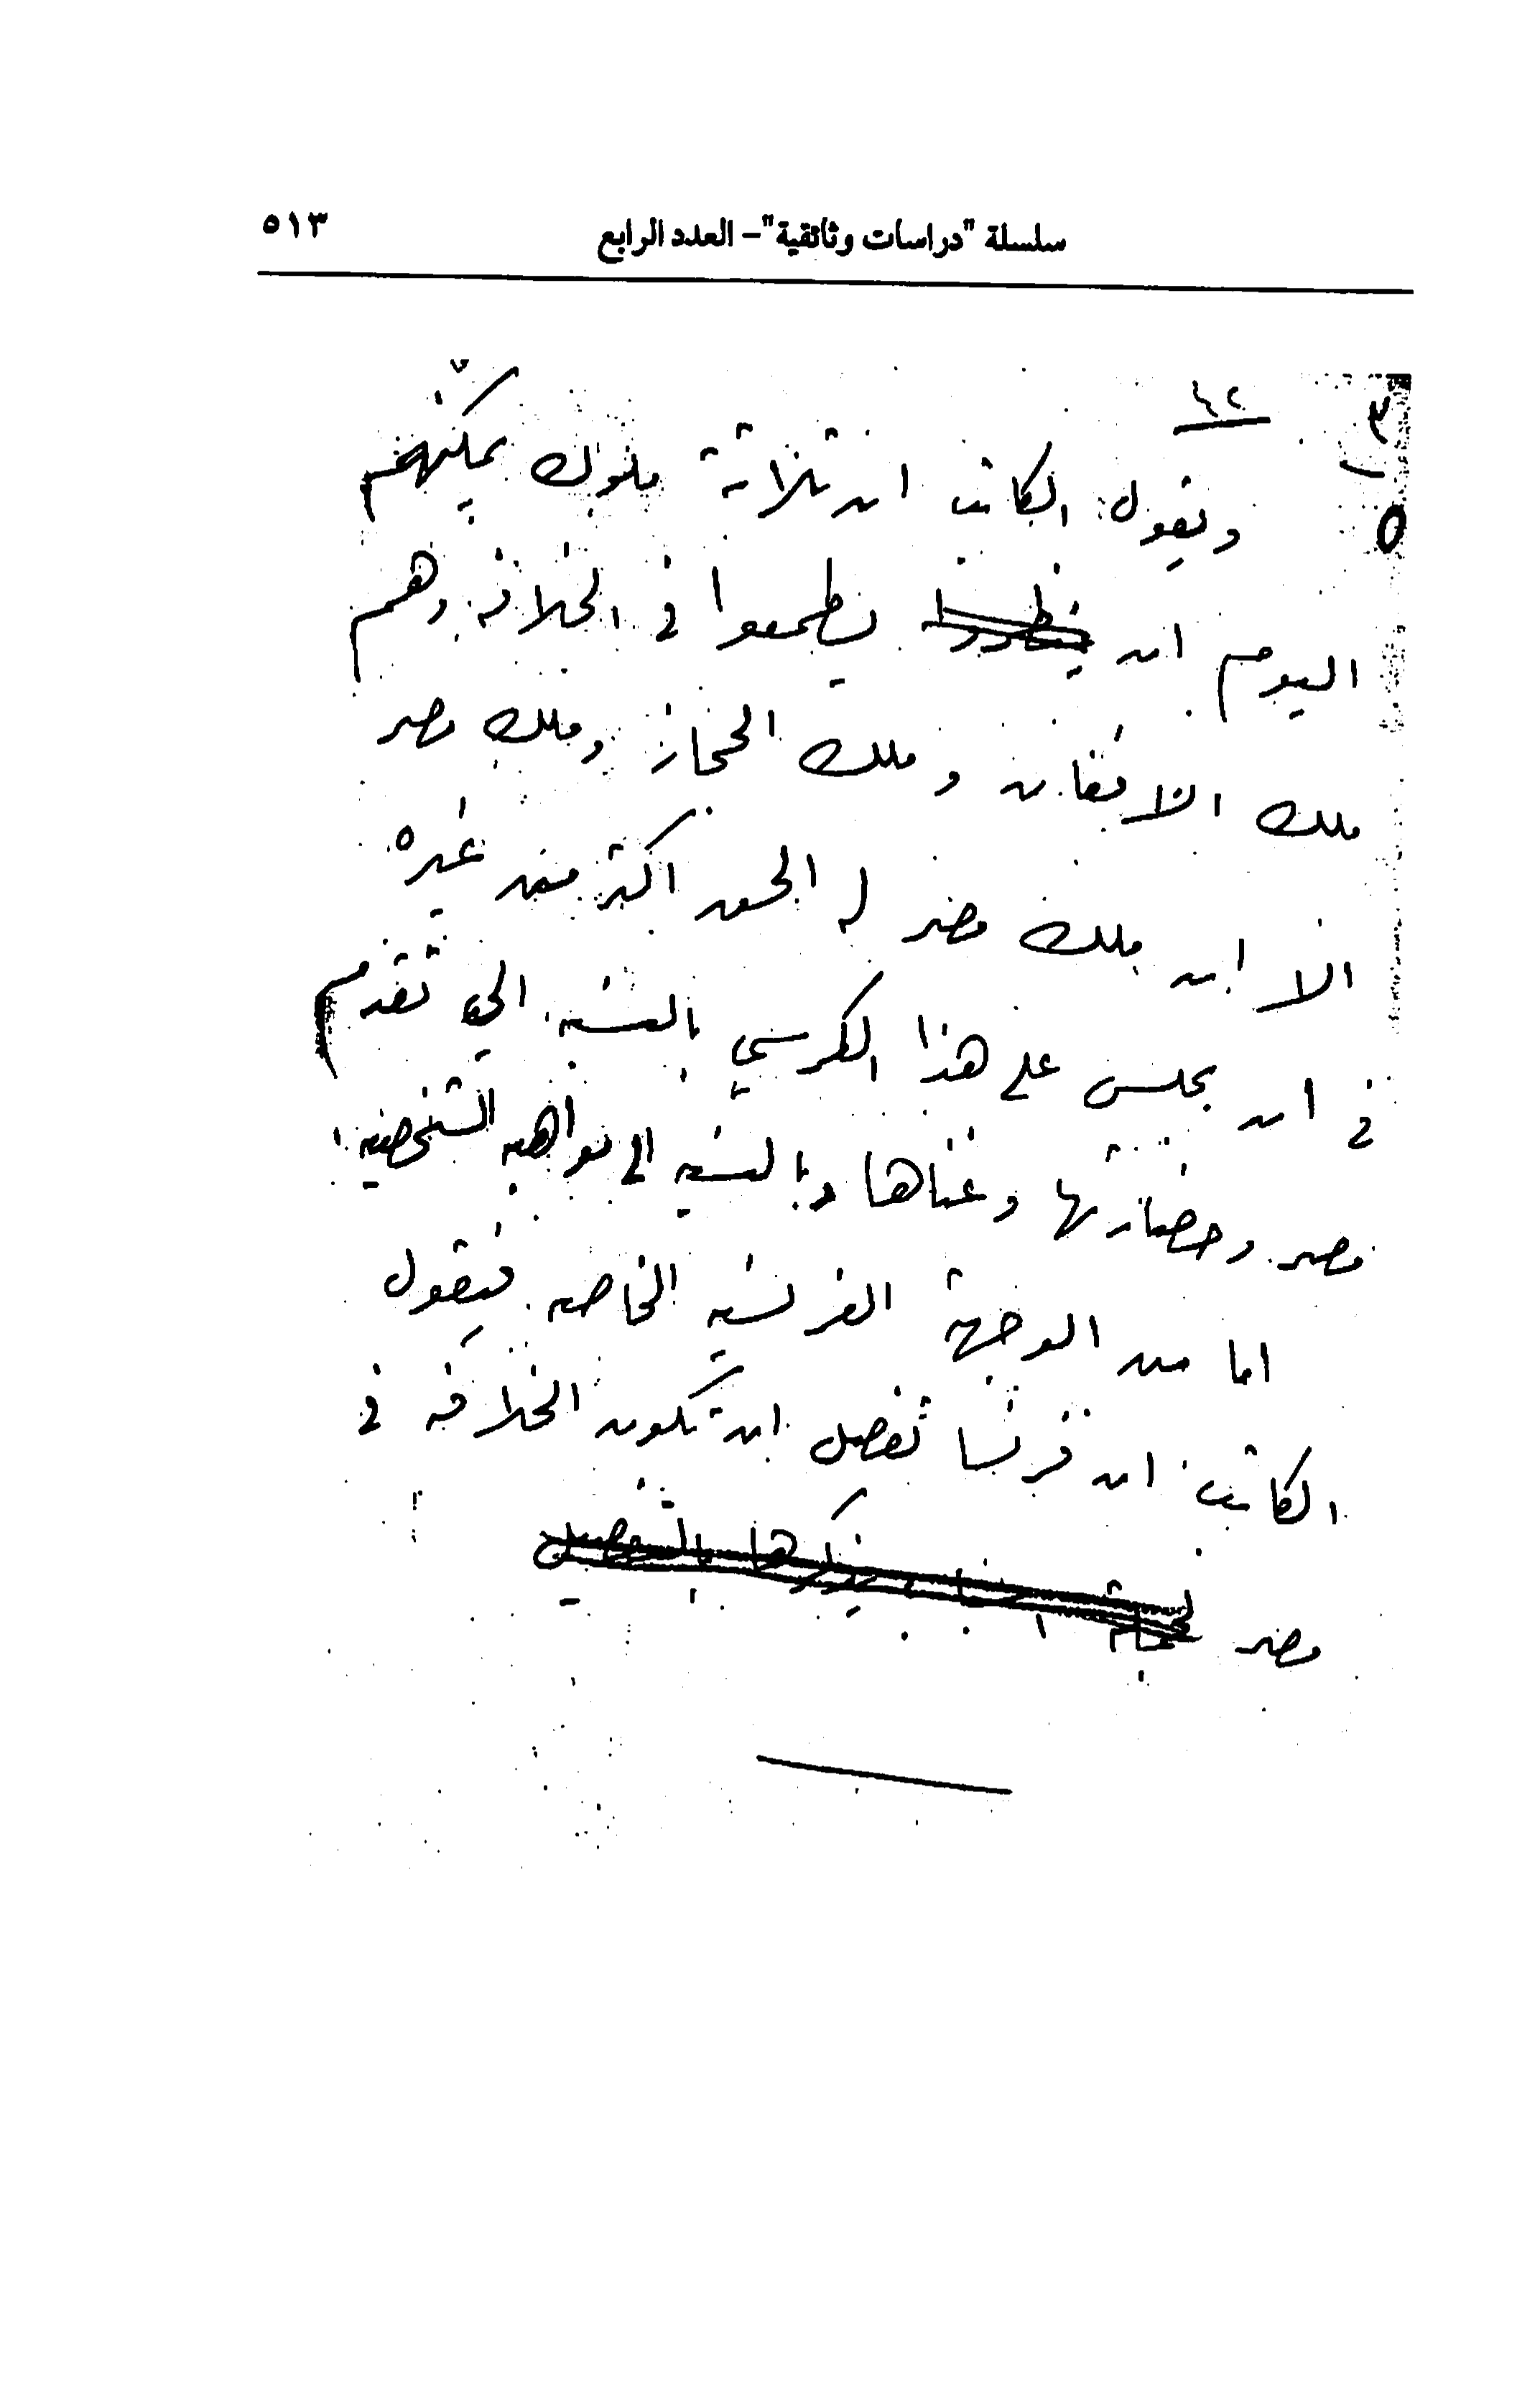 سلسلة "دراسات وثائقية"- العدد الرابع ٥١٣
٤٢
٣
٥
ويقول الكاتب ان ثلاثة ملوك يمكنهم
اليوم ان ينظروا يطمعوا في الخلافه وهم
ملك الافغان وملك الحجاز وملك مصر
الا ان ملك مصر له الحق اكثر من غيره
في ان يجلس على هذا الكرسي بالنسبه الى تقدم
مصر وحضارتها وغناها وبالنسبه الى مواهبه الشخصيه
اما من الوجهة الفرنسيه الخاصه فيقول
الكاتب ان فرنسا تفضل ان تكون الخلافه في
مصر لجملة اسباب يذكرها بالتفصيل